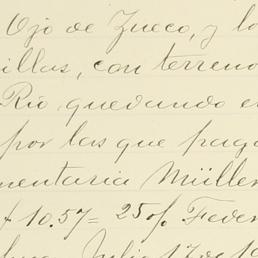 Ojo de Zueco, y lo
illas, con terreno
Río, quedando e
por las que pag
mentaria Müller
$ 10.57 = 25 o/o Feder
Julio 17 de 19